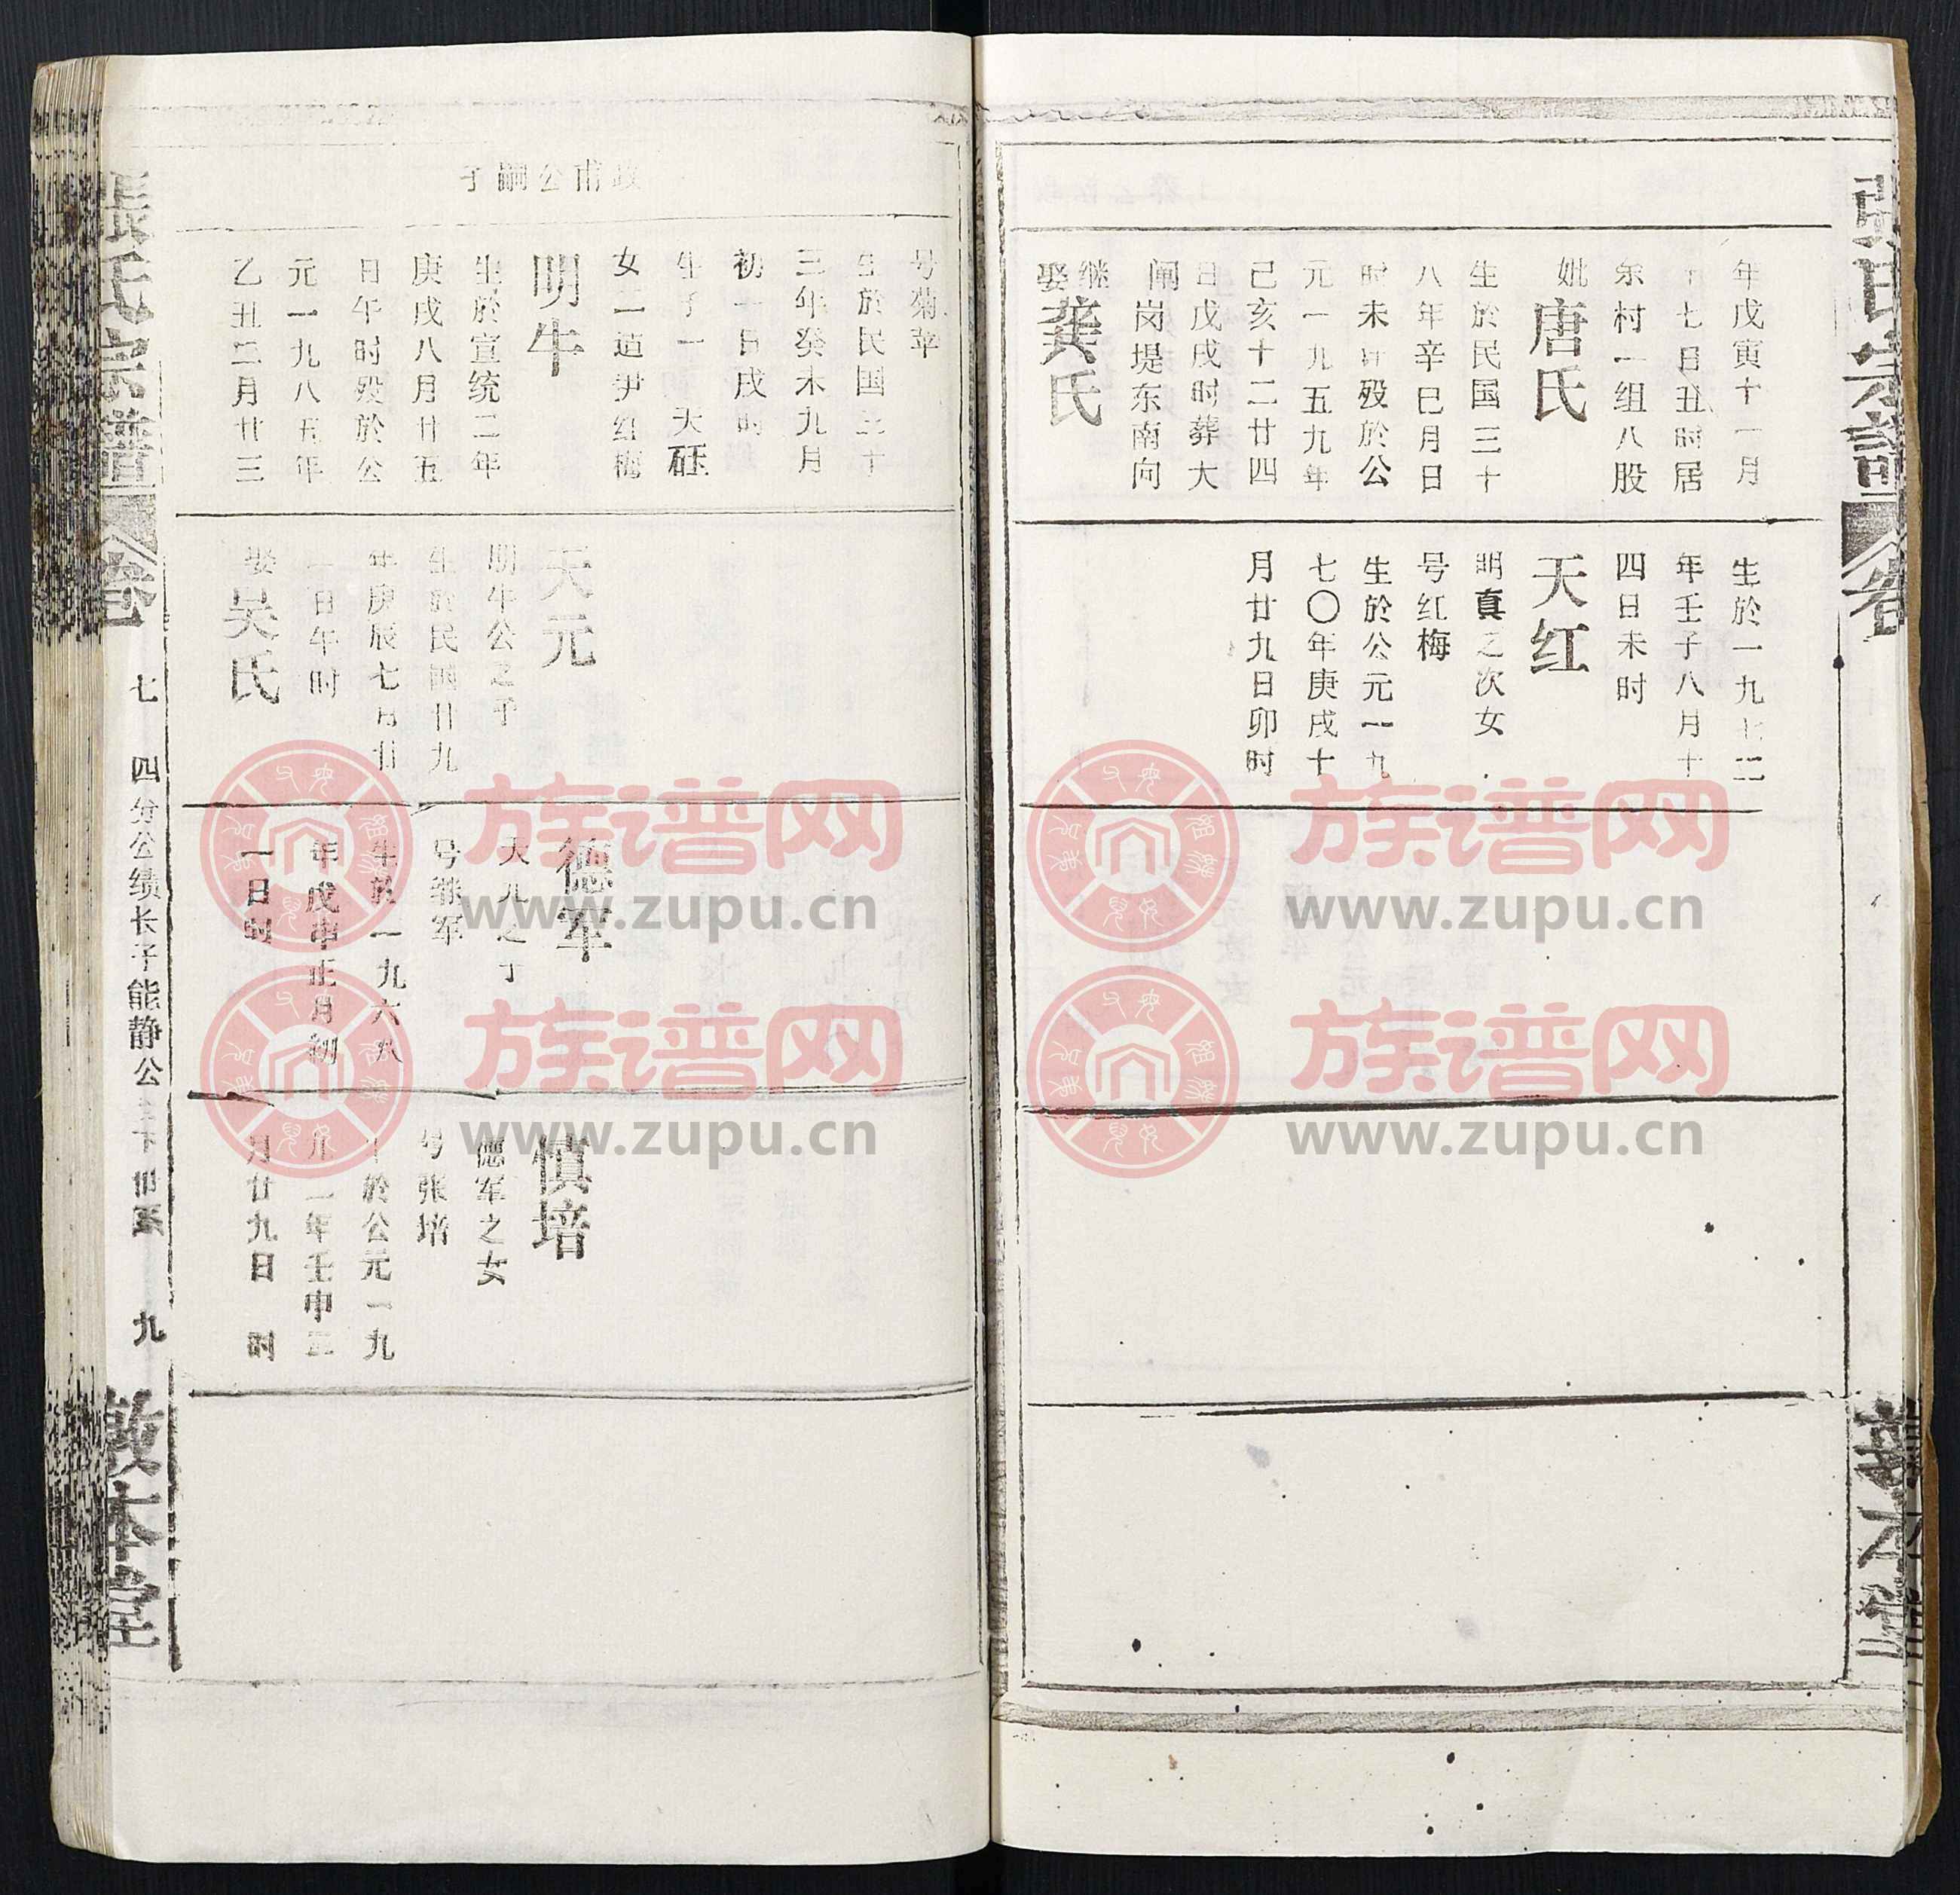 年戊寅十一月
十七日丑时居
东村一组八股
妣唐氏
生於民国三十
八年辛巳月日
时未详殁於公
元一九五九年
己亥十二廿四
日戊戌时葬大
闸岗堤东南向
继娶龚氏
生於一九七二
年壬子八月十
四日未时
天红
明真之次女
号红梅
生於公元一九
七〇年庚戌十
月廿九日卯时
張氏宗譜
卷
政甫公嗣子
号菊苹
生於民国三十
三年癸未九月
初一日戌时
生子一 天砡
女二 适尹红梅
明牛
生於宣统二年
庚戌八月廿五
日午时殁於公
元一九八五年
乙丑二月廿三
天元
明牛公之子
生於民国廿九
年庚辰七月廿
一日午时
娶吴氏
德军
天元之子
号继军
生於一九六八
年戊申正月初
一日时
慎培
德军之女
号张培
生於公元一九
九二年壬申二
月廿九日 时
張氏宗譜
卷七
四分公绩长子能静公之下世系
九
敦本堂
族谱网
www.zupu.cn
族谱网
www.zupu.cn
族谱网
www.zupu.cn
族谱网
www.zupu.cn